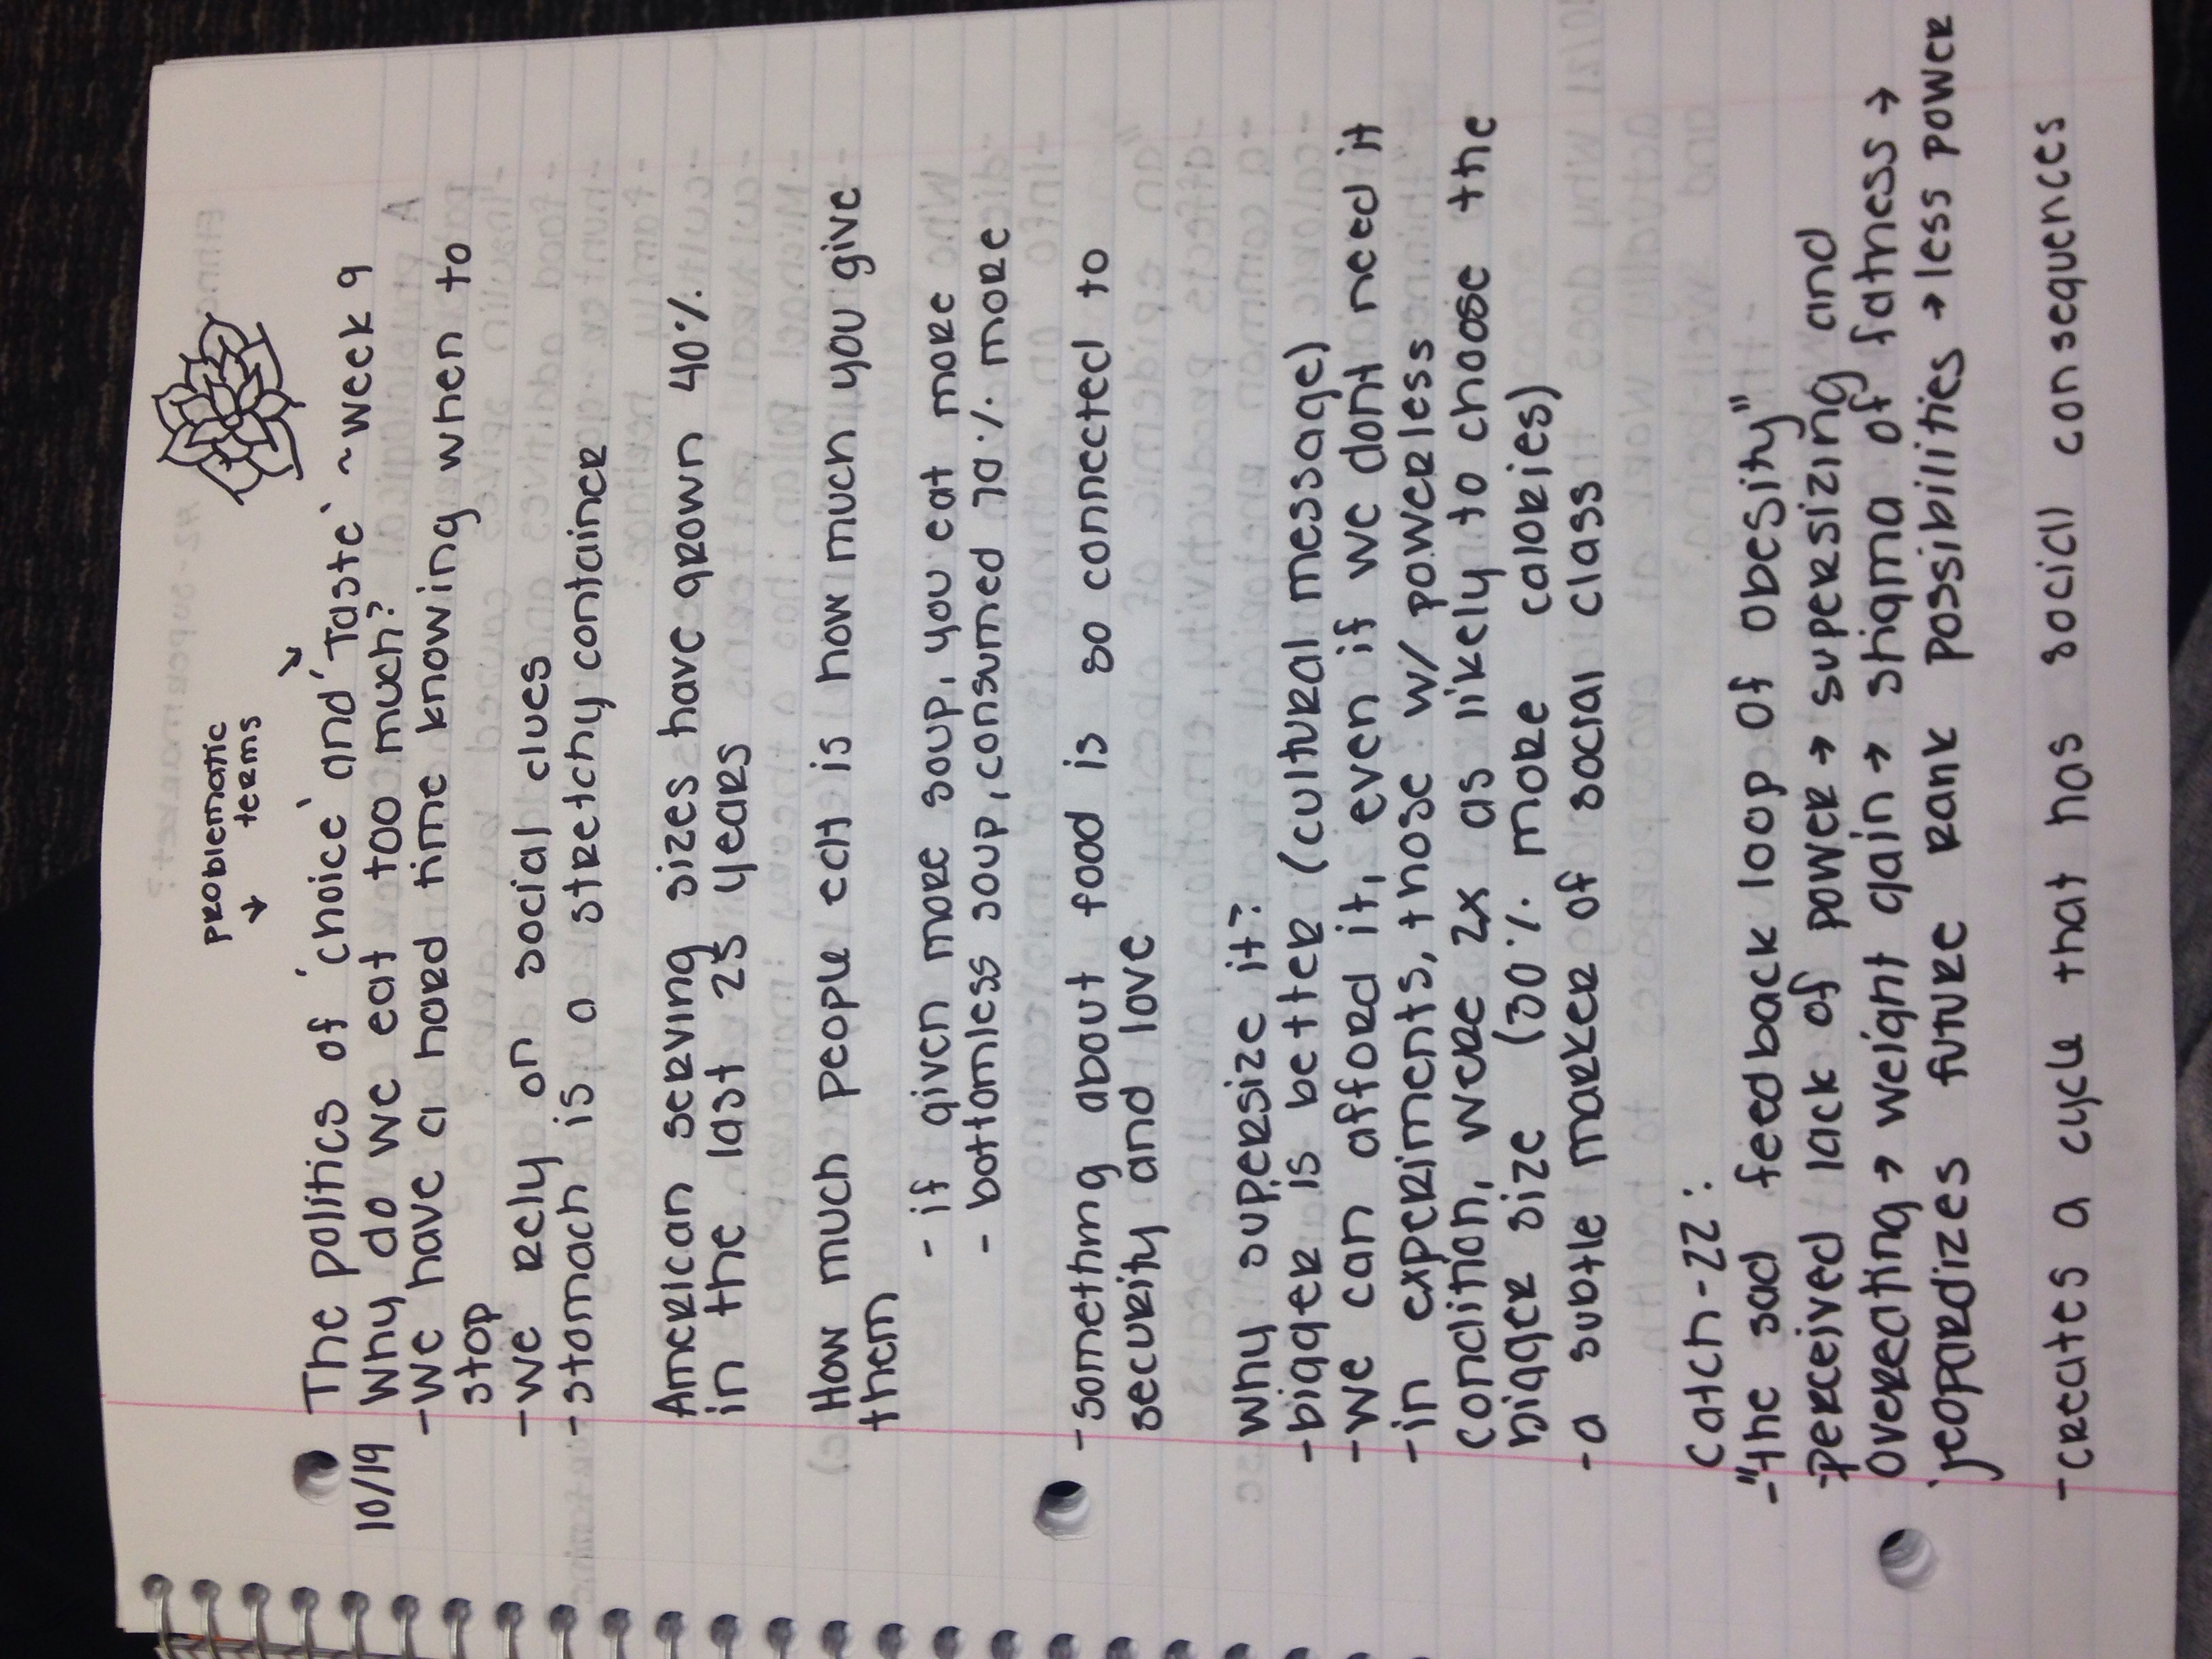 PROBLEMATIC
↓ terms ↘
The politics of 'choice' and 'Taste' ~week 9
10/19 Why do we eat too much?
-We have a hard time knowing when to
stop
-we rely on social clues
-stomach is a stretchy container
American serving sizes have grown 40%
in the last 25 years
How much people eat is how much you give
them
- if given more soup, you eat more
- bottomless soup, consumed 70% more
-something about food is so connected to
security and love
Why supersize it?
-bigger is better (cultural message)
-We can afford it, even if we dont need it
-in experiments, those w/ powerless
condition, were 2x as likely to choose the
bigger size (30% more calories)
-a subtle marker of social class
catch-22:
-"the sad feedback loop of obesity"
perceived lack of power → supersizing and
overeating → weight gain → stigma of fatness →
jeopardizes future rank possibilities → less power
-creates a cycle that has social consequences